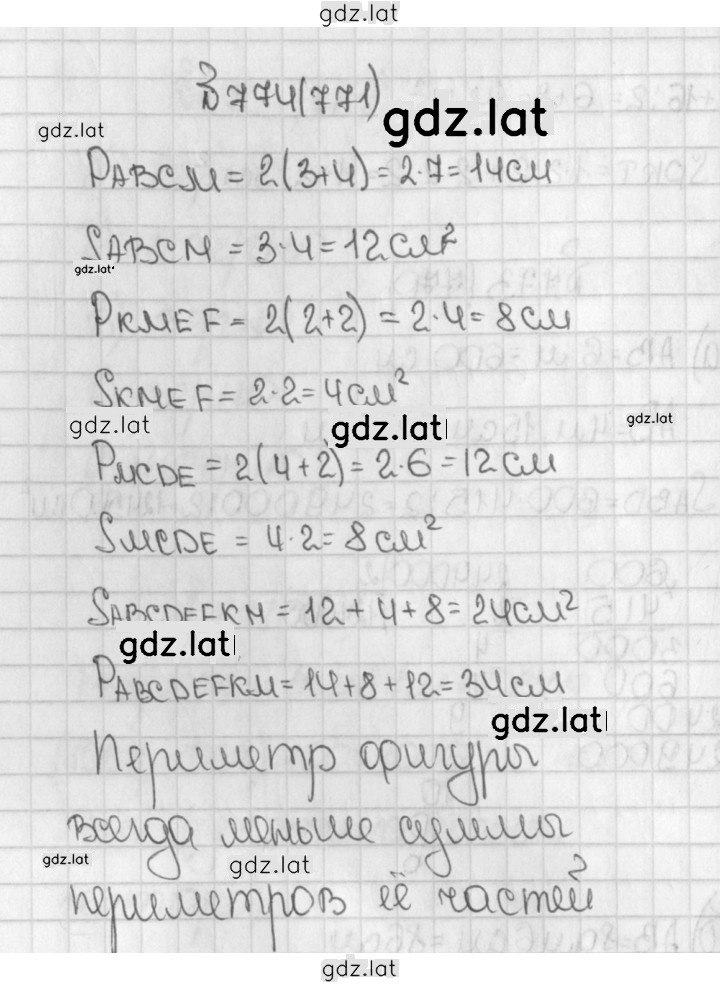 gdz.lat
№774(771)
gdz.lat
gdz.lat
PABCM = 2(3+4) = 2·7 = 14см
SABCM = 3·4 = 12см²
gdz.lat
PKMEF = 2(2+2) = 2·4 = 8см
SKMEF = 2·2 = 4см²
gdz.lat
gdz.lat
gdz.lat
PMCDE = 2(4+2) = 2·6 = 12см
SMCDE = 4·2 = 8см²
SABCDEFKM = 12+4+8 = 24см²
gdz.lat
PABCDEFKM = 14+8+12 = 34см
gdz.lat
Периметр фигуры
всегда меньше суммы
gdz.lat
gdz.lat
периметров её частей
gdz.lat